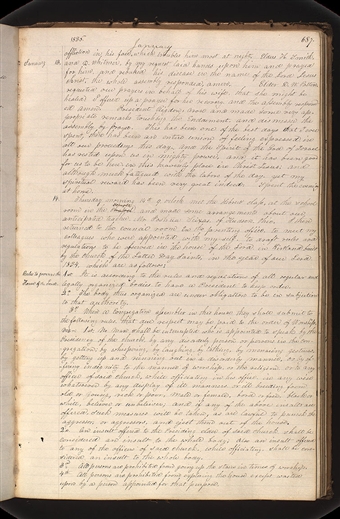 1836 January 687
affliction in his face, which troubles him most at night. Elders H. Smith
January and D. Whitmer, by my request laid hands upon him and prayed
for him, and rebuked his disease in the name of the Lord Jesus
Christ, the whole assembly responded, amen. Elder D. W. Patten
requested our prayers in behalf of his wife, that she might be
healed. I offered up a prayer for her recovery and the assembly responded
amen. President Rigdon arose and made some very ap-
propriate remarks touching the Endowment, and dismissed the
assembly by prayer. This has been one of the best days that I ever
spent, there has been an entire unison of feeling expressed in
all our proceedings this day, and the Spirit of the God of Israel
has rested upon us in mighty power, and it has been good
for us to be here in this heavenly place in Christ Jesus, and
although much fatigued with the labors of the day, yet my
spiritual reward has been very great indeed. Spent the evening
at home.
14 Thursday morning at 9 o'clock met the Hebrew class, at the school
room in the Chapel, and made some arrangements about our
anticipated teacher, Mr Joshua Seixas of Hudson, Ohio. I then
returned to the council room in the printing office, to meet my
colleagues who were appointed with myself, to draft rules and
regulations to be observed in the house of the Lord in Kirtland, built
by the Church of the Latter Day Saints, in the year of our Lord
1834, which are as follows:
Rules to govern the House of the Lord. 1st It is according to the rules and regulations of all regular and
legally organized bodies to have a President to keep order.
2d The body thus organized are under obligation to be in subjection
to that authority.
3d When a congregation assembles in this house, they shall submit to
the following rules, that due respect may be paid to the order of worship,
viz: 1st No man shall be interrupted who is appointed to speak by the
Presidency of the Church, by any disorderly person or persons in the con-
gregation, by whispering, by laughing, by talking, by menacing gestures,
by getting up and running out in a disorderly manner, or by of-
fering indignity to the manner of worship, or the religion, or to any
officer of said church, while officiating in his office, in any wise
whatsoever, by any display of ill manners, or ill breeding, from
old or young, rich or poor, male or female, bond or free, black or
white, believer or unbeliever, and if any of the above insults are
offered, such measures will be taken, as are lawful, to punish the
aggressor or aggressors, and eject them out of the house.
2d An insult offered to the presiding elder of said church shall be
considered an insult to the whole body, also an insult offered
to any of the officers of said church, while officiating, shall be con-
sidered an insult to the whole body.
3d All persons are prohibited from going up the stairs in times of worship.
4th All persons are prohibited from exploring the house except waited
upon by a person appointed for that purpose.